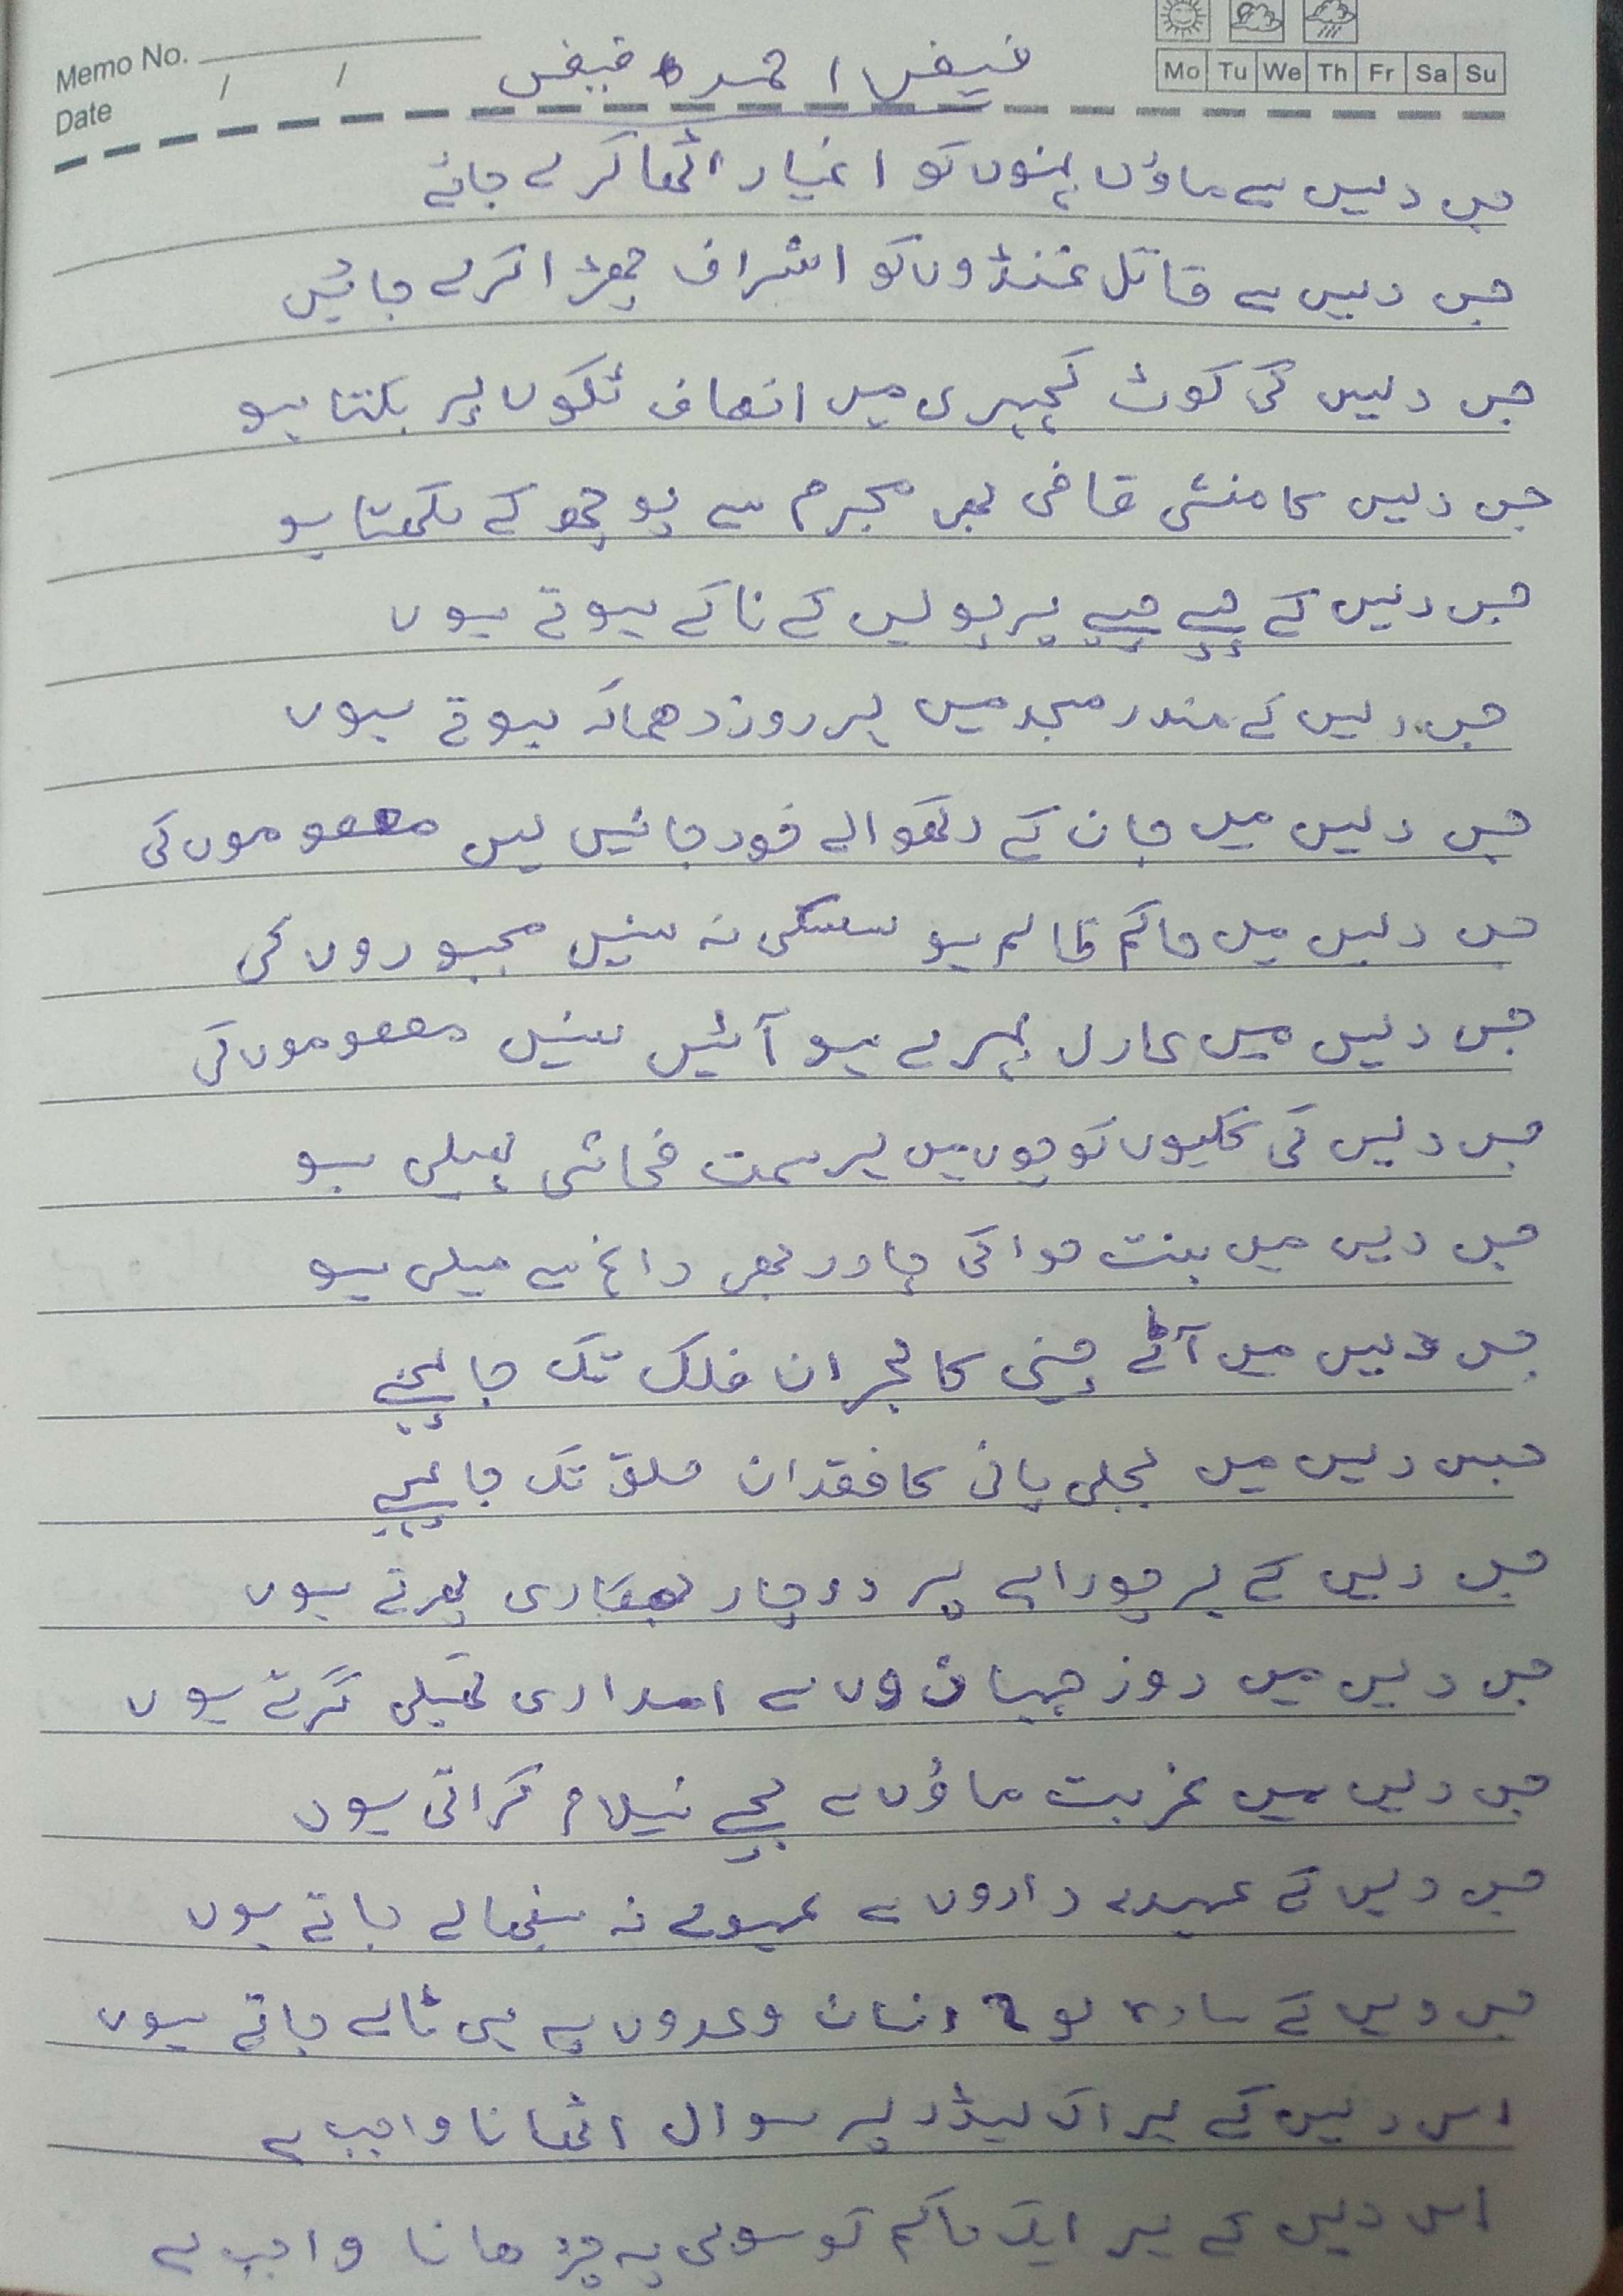 Memo No.
Date / /
Mo Tu We Th Fr Sa Su
فیض احمد فیض
جس دیس سے ماؤں بہنوں کو اغیار اٹھا کر لے جائے
جس دیس سے قاتل غنڈوں کو اشراف چھڑا کر لے جائیں
جس دیس کی کوٹ کچہری میں انصاف ٹکوں پر بکتا ہو
جس دیس کا منشی قاضی بھی مجرم سے پوچھ کے لکھتا ہو
جس دیس کے چپے چپے پر پولیس کے ناکے ہوتے ہوں
جس دیس کے مندر مسجد میں ہر روز دھماکہ ہوتے ہوں
جس دیس میں جان کے رکھوالے خود جانیں لیں معصوموں کی
جس دیس میں حاکم ظالم ہو سسکی نہ سنیں مجبوروں کی
جس دیس میں عادل بہرے ہو آئیں سنیں معصوموں کی
جس دیس کی گلیوں کوچوں میں ہر سمت فحاشی پھیلی ہو
جس دیس میں بنت حوا کی چادر بھی داغ سے میلی ہو
جس دیس میں آٹے چینی کا بحران فلک تک جا پہنچے
جس دیس میں بجلی پانی کا فقدان حلق تک جا پہنچے
جس دیس کے ہر چوراہے پر دو چار بھکاری پھرتے ہوں
جس دیس میں روز جہازوں سے امدادی تھیلی گرتے ہوں
جس دیس میں غربت ماؤں سے بچے نیلام کراتی ہوں
جس دیس کے عہدے داروں سے عہدے نہ سنبھالے جاتے ہوں
جس دیس کے سادہ لوح انسان وعدوں پہ ہی ٹالے جاتے ہوں
اس دیس کے ہر اک لیڈر پر سوال اٹھانا واجب ہے
اس دیس کے ہر ایک حاکم کو سولی پہ چڑھانا واجب ہے